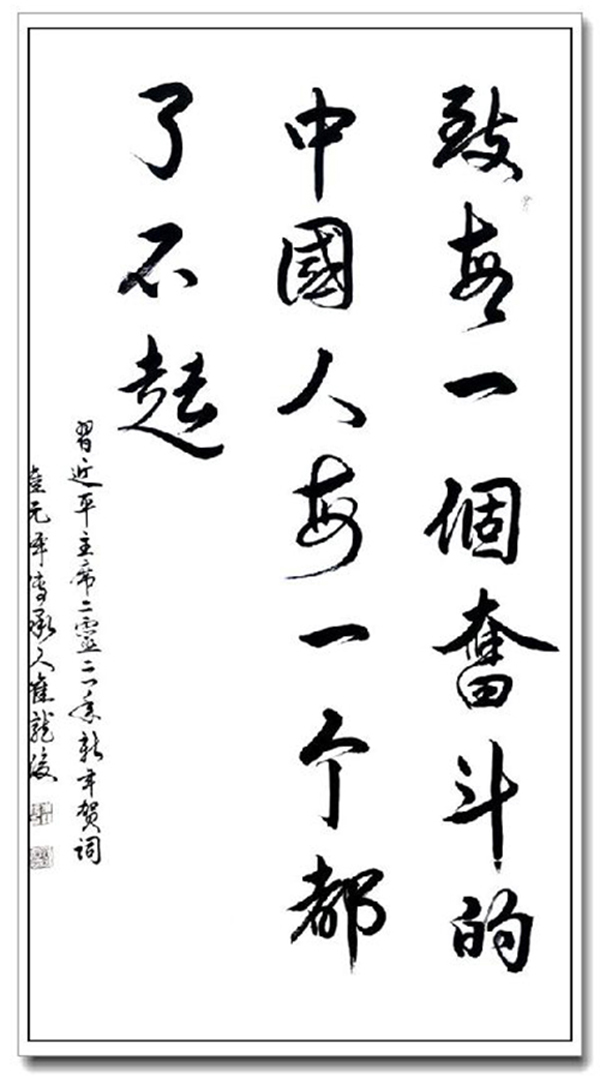 致每一個奮斗的
中國人每一个都
了不起
習近平主席二零二一年新年贺词
崔元平傳承人崔龍俊